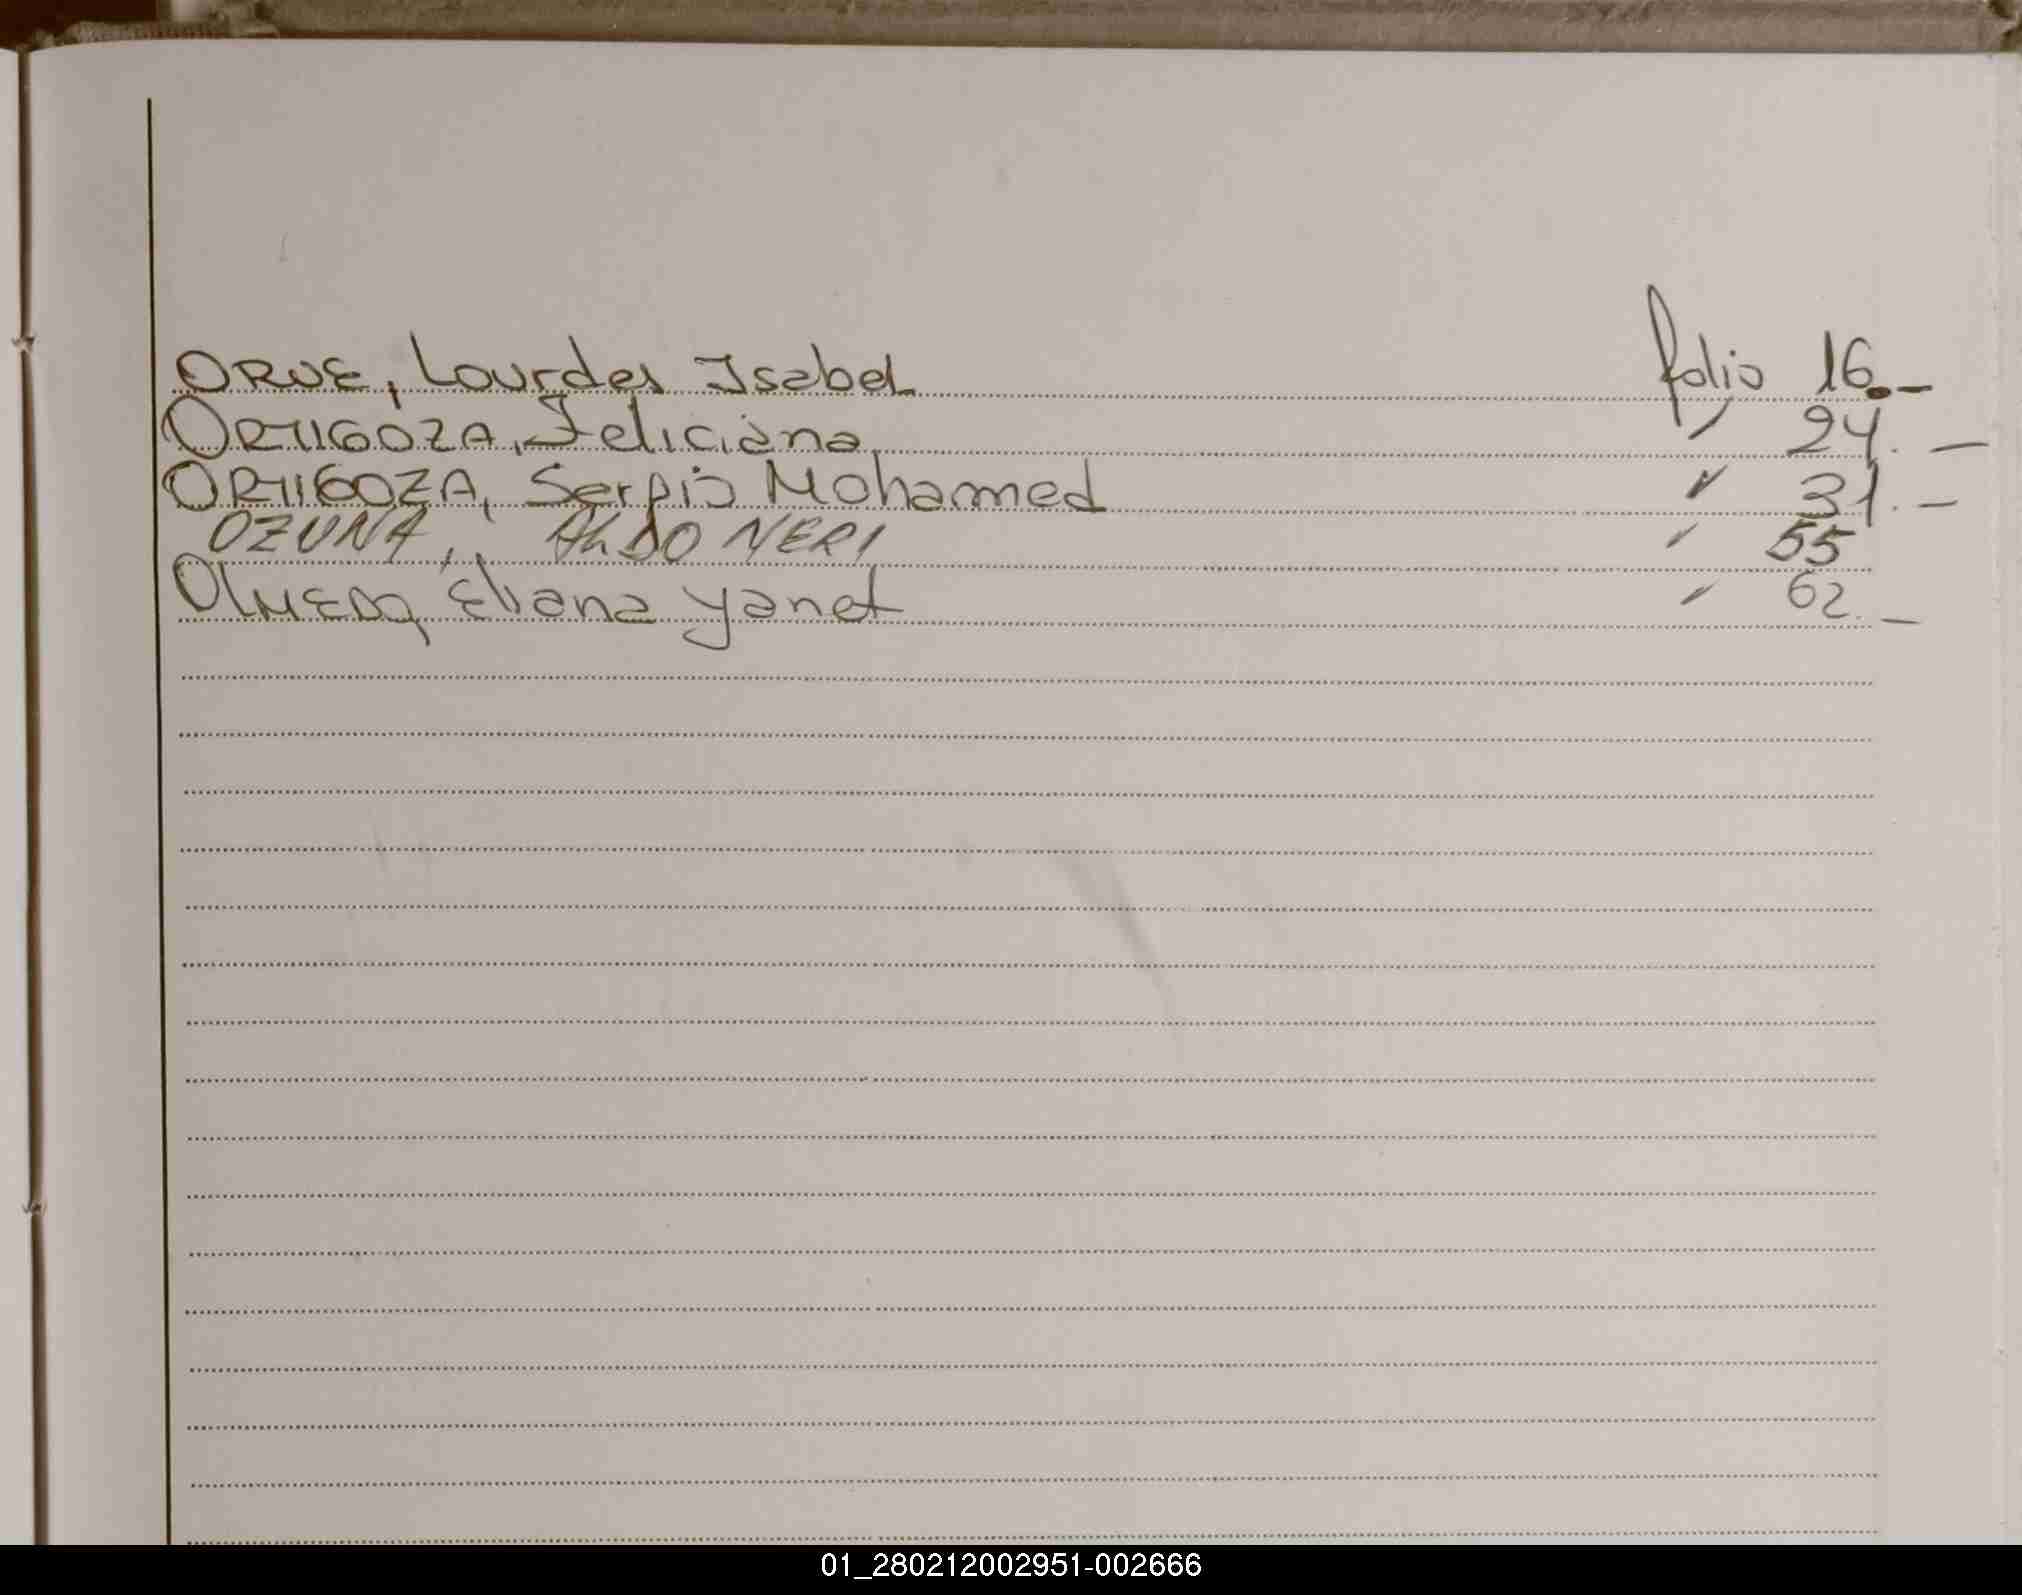 ORUE, Lourdes Isabel folio 16.-
ORTIGOZA, Feliciana " 24.-
ORTIGOZA, Sergio Mohamed " 31.-
OZUNA, ALDO NERI " 55
OLMEDO, Eliana Yanet " 62.-
01_280212002951-002666